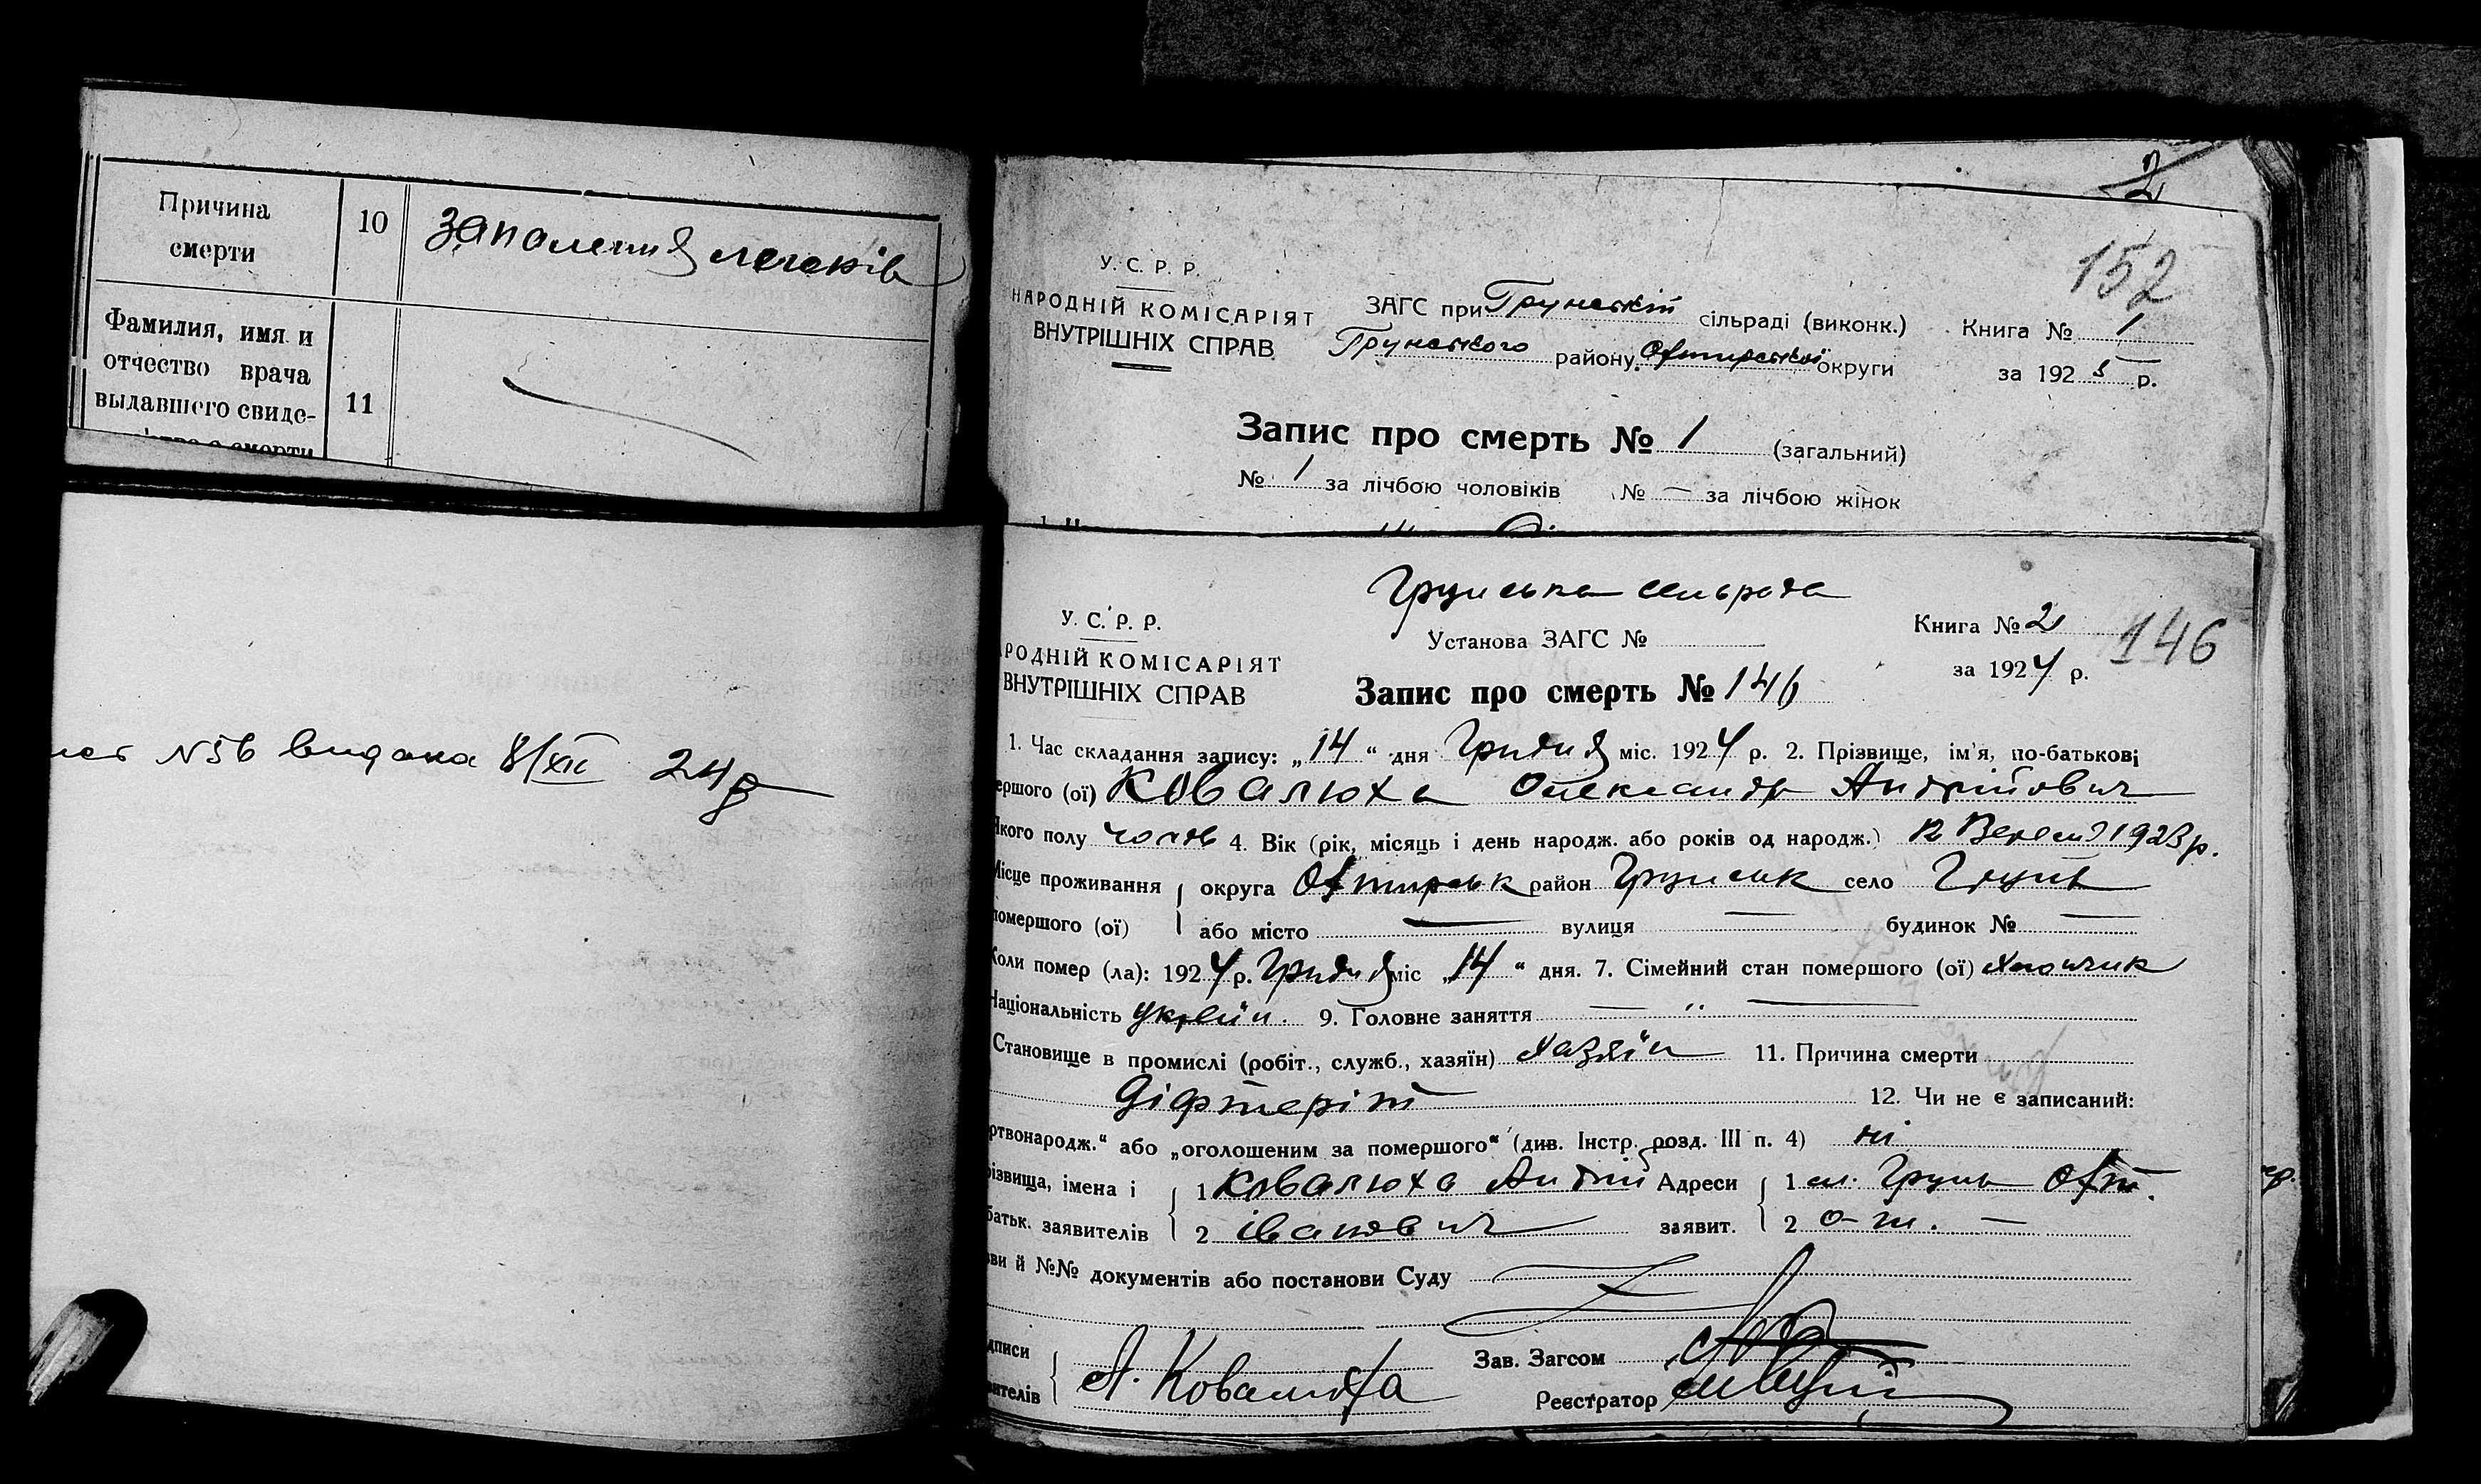 Причина
смерти
10
запалення легенів
Фамилия, имя и
отчество врача
выдавшего свиде-
11
смерти
№ 56 видана 8/XII 24 р
2
152
У. С. Р. Р.
НАРОДНІЙ КОМІСАРІЯТ
ВНУТРІШНІХ СПРАВ
ЗАГС при Грунській сільраді (виконк.)
Грунського району Охтирської округи
Книга № 1
за 1925 р.
Запис про смерть № 1 (загальний)
№ 1 за лічбою чоловіків № — за лічбою жінок
Грунська сельрада
У. С. Р. Р.
РОДНІЙ КОМІСАРІЯТ
ВНУТРІШНІХ СПРАВ
Установа ЗАГС №
Книга № 2
за 1924 р.
146
Запис про смерть № 146
1. Час складання запису: „14“ дня Грудня міс. 1924 р. 2. Прізвище, ім'я, по-батькові
ершого (ої) Ковалюха Олександр Андрійович
якого полу чолов 4. Вік (рік, місяць і день народж. або років од народж.) 1923 р.
Місце проживання округа Охтирськ район Грунськ село Грунь
помершого (ої) або місто — вулиця — будинок № —
Коли помер (ла): 1924 р. Грудня міс „14“ дня. 7. Сімейний стан помершого (ої) хлопчик
Національність україн. 9. Головне заняття — „ —
Становище в промислі (робіт., служб., хазяїн) хазяїн 11. Причина смерти
Діфтеріт 12. Чи не є записаний:
ртвонародж.“ або „оголошеним за помершого“ (див. Інстр. розд. III п. 4) ні
різвища, імена і 1 Ковалюха Андрій Адреси 1 сл. Грунь Охт.
батьк. заявителів 2 Іванович заявит. 2 о-ги. —
ви й №№ документів або постанови Суду
дписи
вителів А. Ковалюха
Зав. Загсом
Реєстратор